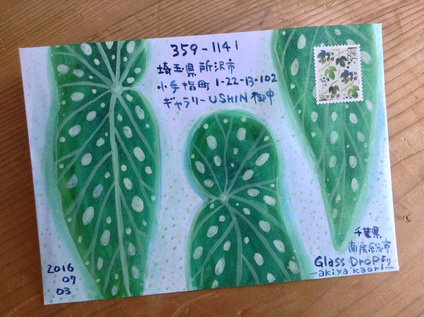 359-1141
埼玉県所沢市
小手指町1-22-13-102
ギャラリーUSHIN御中
千葉県
南房総市
Glass Dropより
-akiya kaori-
2016
07
03